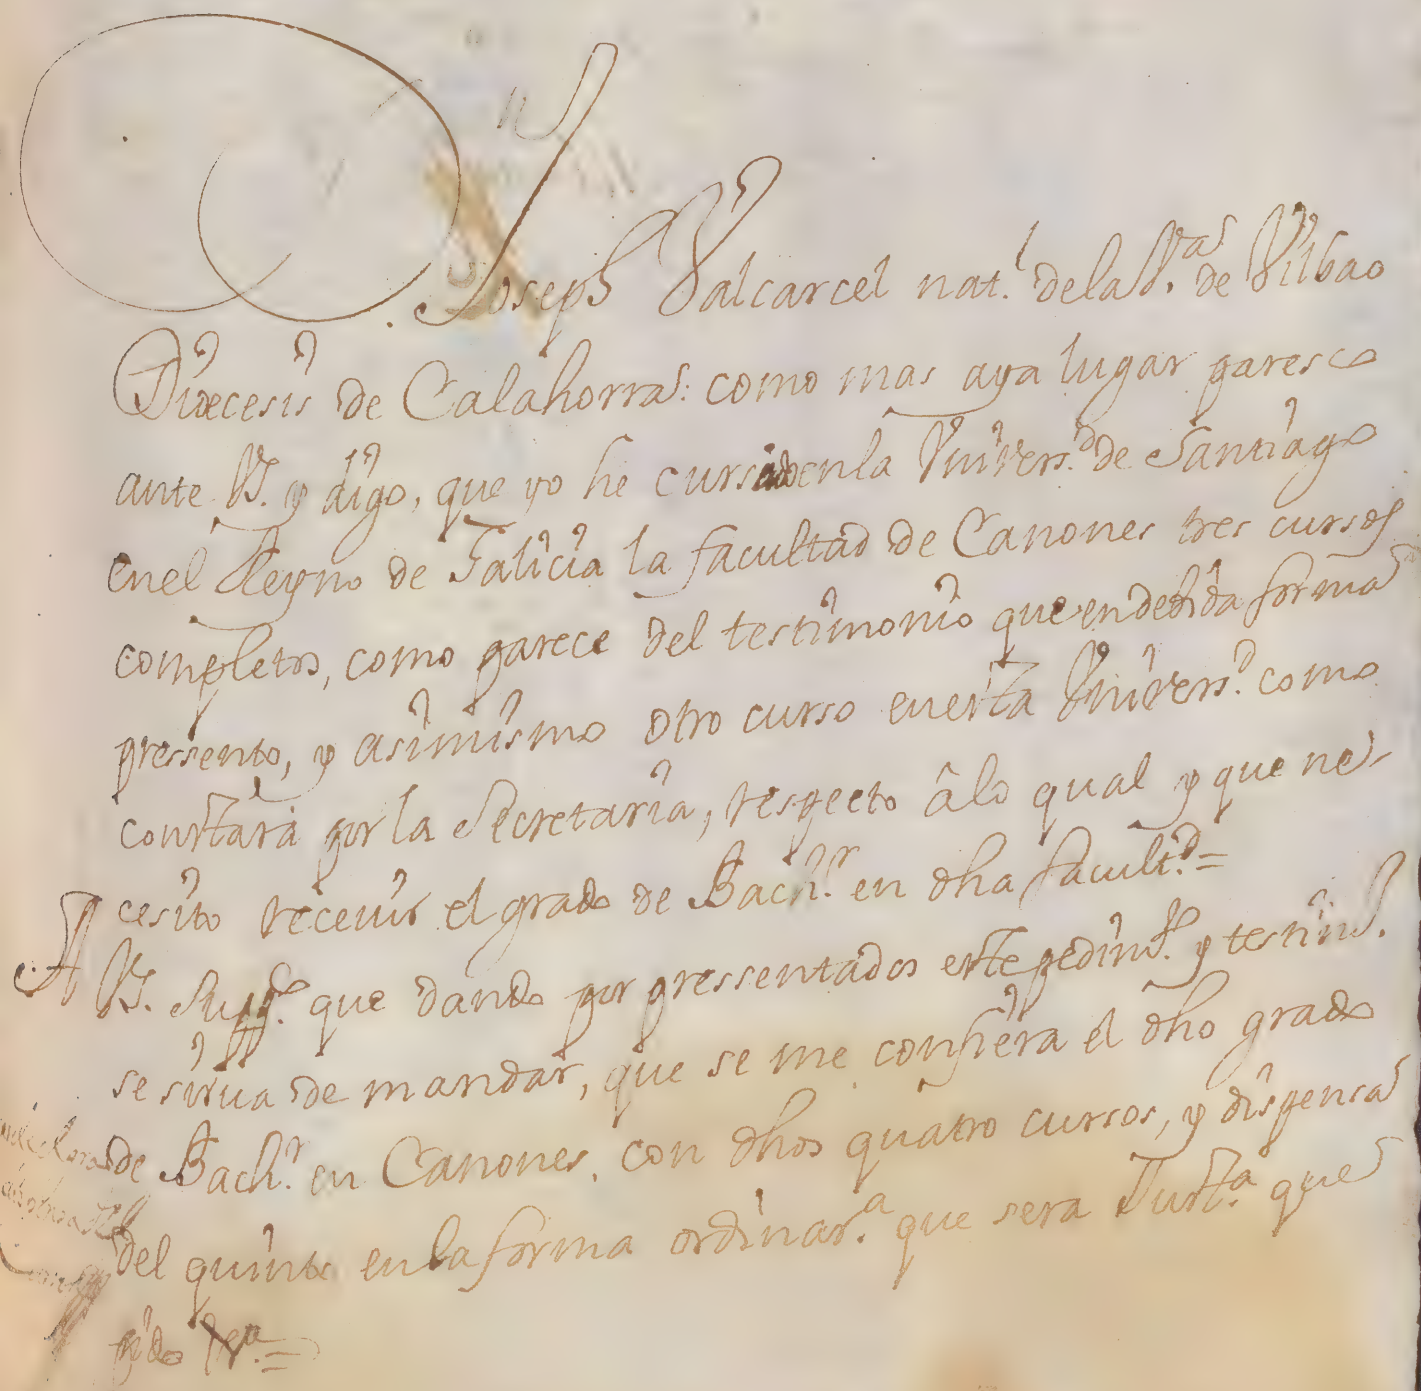 Joseph Valcarcel nat.l de la V.a de Vilbao
Diœcesis de Calahorra: como mas aya lugar paresco
ante VS. y digo, que yo he cursado en la Vnivers.d de Santiago
en el Reyno de Galicia la facultad de Canones tres cursos
completos, como parece del testimonio que en debida forma
pressento, y asimismo otro curso en esta Vnivers.d como
constará por la Secretaria, respecto âlo qual y que ne-
cesito recevir el grado de Bach.r en dha facult.d =
A VS. Supp.co que dando por pressentados este pedim.to y testim.o
se sirua de mandar, que se me confiera el dho grado
de Bach.r en Canones, con dhos quatro cursos, y dispensa
del quinto en la forma ordinar.a que sera Just.a que
pido &.a =